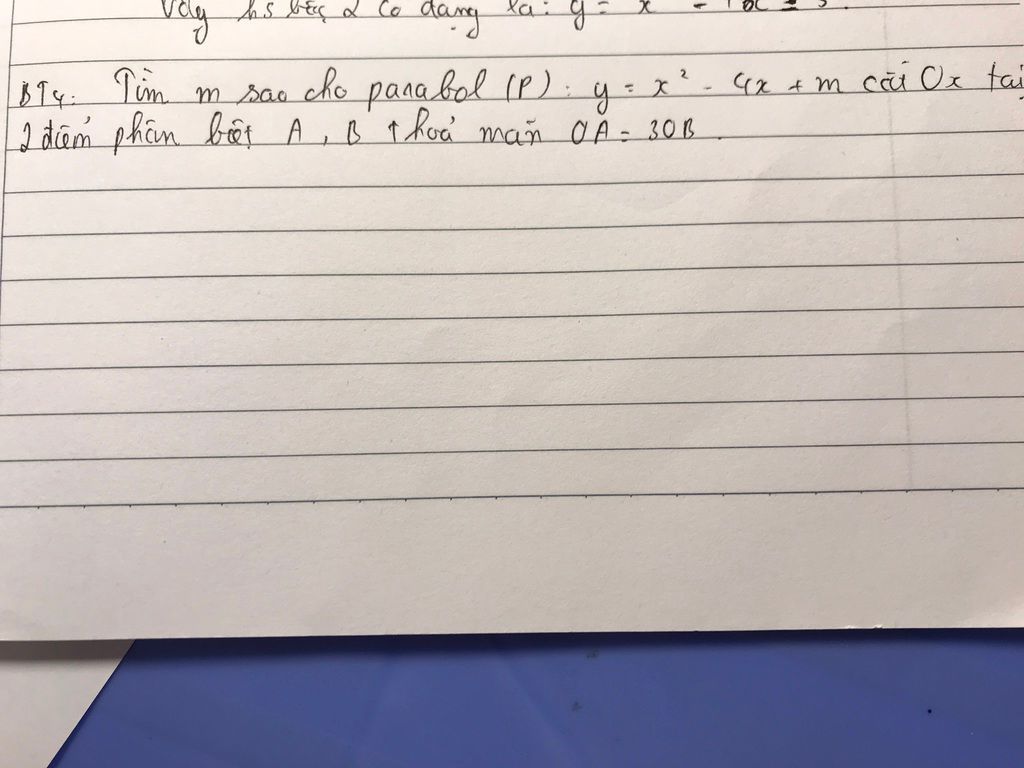 Vậy hs bậc 2 có dạng là: y = x
BT4: Tìm m sao cho parabol (P): y = x² - 4x + m cắt Ox tại
2 điểm phân biệt A, B thoả mãn OA = 3OB.